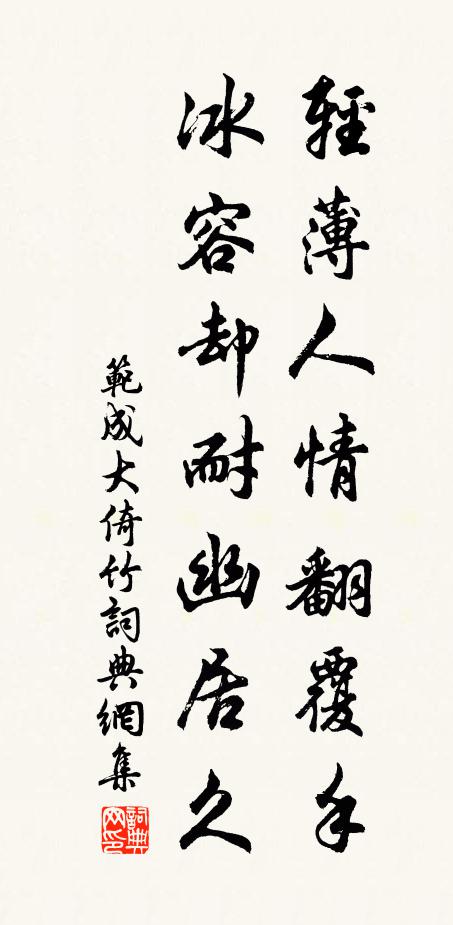 輕薄人情翻覆手
冰容却耐幽居久
範成大倚竹詞典網集
詞典網印